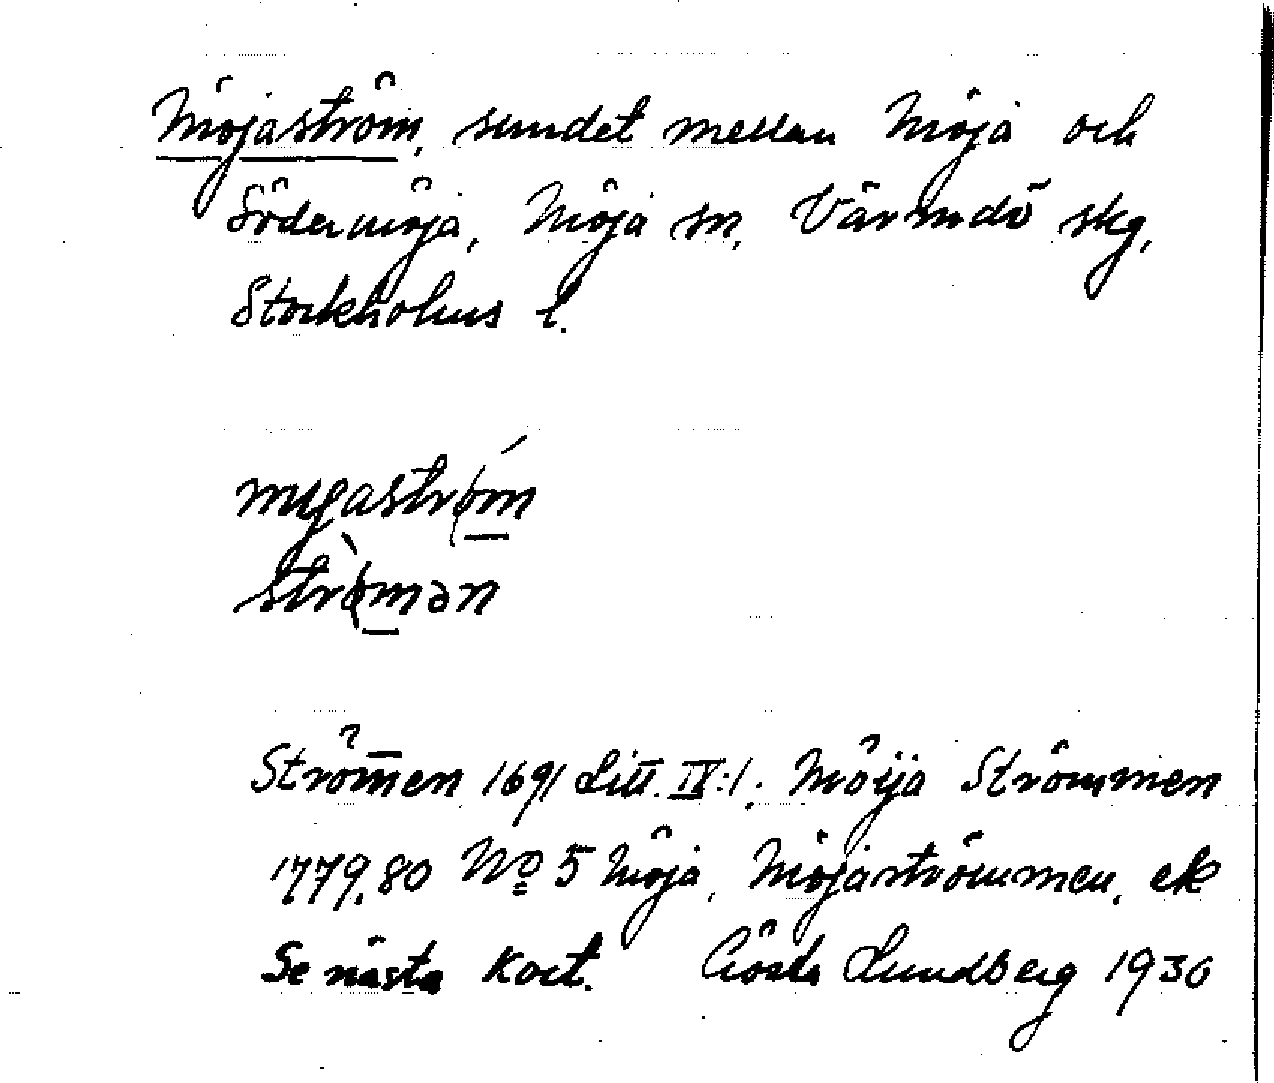 Möjaström, sundet mellan Möja och
Södermöja, Möja sn, Värmdö skg,
Stockholms l.
myjaström
strömən
Strömen 1691 Litt. IV:1; Möija Strömmen
1779,80 No 5 Möja, Möjaströmmen, ek
Se nästa kort. Gösta Lundberg 1930